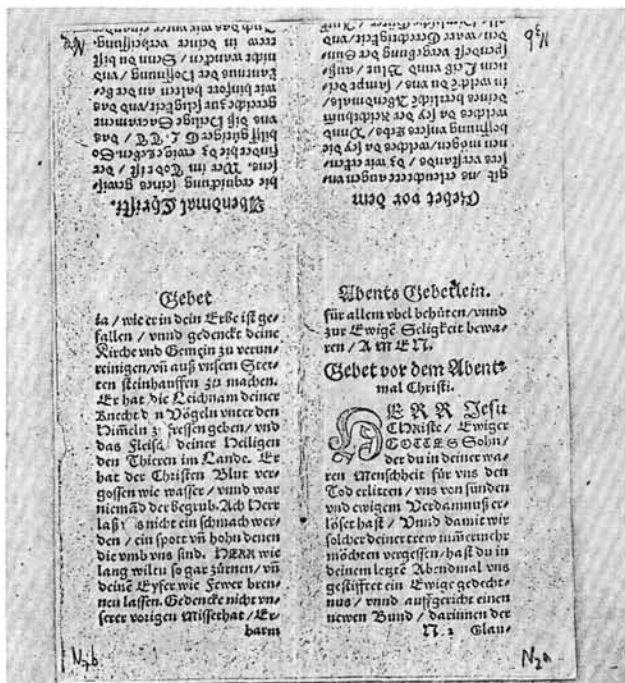 N3a
Abendmal Christi.
sens. Wer im Todt ist / der
hilff gütiger G O T T / das
vns diß Heilige Sacrament
gereiche zur seligkeit / vnd das
wir hinfort halten an der be⸗
kantnus der Hoffnung / vnd
nicht wancken / Denn du bist
trew in deiner verheissung.
Auch das wir vnter einander
N2b
Gebet vor dem
gib / vns erleuchtete augen vn⸗
sers verstands / dz wir erken⸗
nen mögen / welches da sey die
hoffnung vnsers / Vnnd
welches da sey der Reichthumb
deines Abendmals /
in welchē du vns / sampt dei⸗
nem Leib vnnd Blut / auß⸗
spendest vergebung der Sün⸗
den / ware Gerechtigkeit / vnd
alle Himlische Güter / Auff
Gebet
da / wie er in dein Erbe ist ge⸗
fallen / vnnd gedenckt deine
Kirche vnd Gemein zu verun⸗
reinigen / vñ auß vnsern Stet⸗
ten steinhauffen zu machen.
Er hat die Leichnam deiner
Knecht d n Vögeln vnter den
Himeln z fressen geben / vnd
das Fleisch deiner Heiligen
den Thieren im Lande. Er
hat der Christen Blut ver⸗
gossen wie wasser / vnnd war
niemād der begrub. Ach Herr
laß s nicht ein schmach wer⸗
den / ein spott vñ hohn denen
die vmb vns sind. HERR wie
lang wiltu so gar zürnen / vñ
deinē Eyfer wie Fewer bren⸗
nen lassen. Gedencke nicht vn⸗
serer vorigen Missethat / Er⸗
barm
N7b
Abents Gebetlein.
für allem vbel behüten / vnnd
zur Ewigē Seligkeit bewa⸗
ren / A M E N.
Gebet vor dem Abent⸗
mal Christi.
HERR Jesu
CHriste / Ewiger
GOTTES Sohn /
der du in deiner wa⸗
ren Menschheit für vns den
Tod erlitten / vns von sünden
vnd ewigem Verdamnuß er⸗
löset hast / Vnnd damit wir
solcher deiner trew nimermehr
möchten vergessen / hast du in
deinem letztē Abendmal vns
gestifftet ein Ewige gedecht⸗
nus / vnnd auffgericht einen
newen Bund / darinnen der
N. 2 Glau⸗
N2a